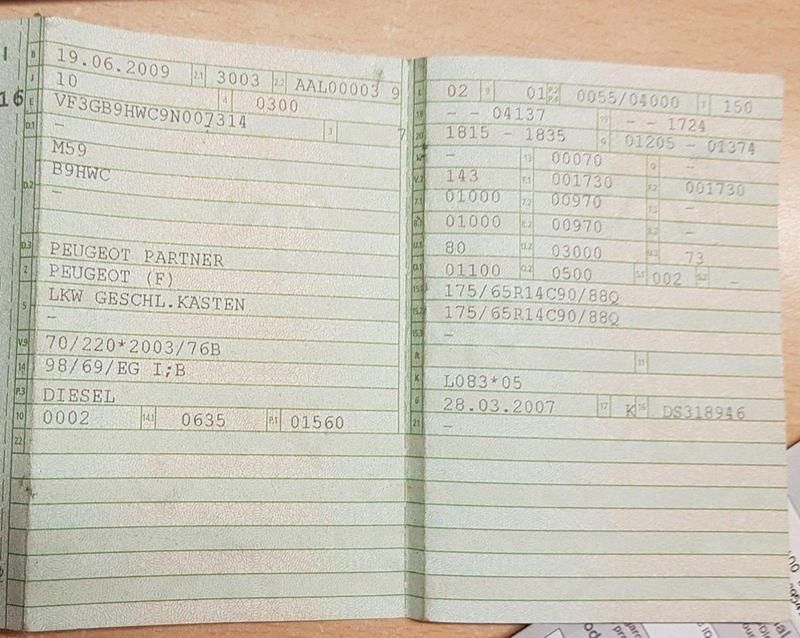 16
B 19.06.2009 2.1 3003 2.2 AAL00003 9
J 10 4 0300
E VF3GB9HWC9N007314 3 7
D.1 -
M59
D.2 B9HWC
-
D.3 PEUGEOT PARTNER
2 PEUGEOT (F)
5 LKW GESCHL.KASTEN
-
V.9 70/220*2003/76B
14 98/69/EG I;B
P.3 DIESEL
10 0002 14.1 0635 P.1 01560
22
L 02 9 01 P.2 P.4 0055/04000 T 150
18 - - 04137 19 - - 1724
20 1815 - 1835 G 01205 - 01374
- 13 00070 Q -
V.7 143 F.1 001730 F.2 001730
7.1 01000 7.2 00970 7.3 -
8.1 01000 8.2 00970 8.3 -
U.1 80 U.2 03000 U.3 73
O.1 01100 O.2 0500 S.1 002 S.2 -
15.1 175/65R14C90/88Q
15.2 175/65R14C90/88Q
15.3 -
R 11
K L083*05
6 28.03.2007 17 K 16 DS318946
21 -